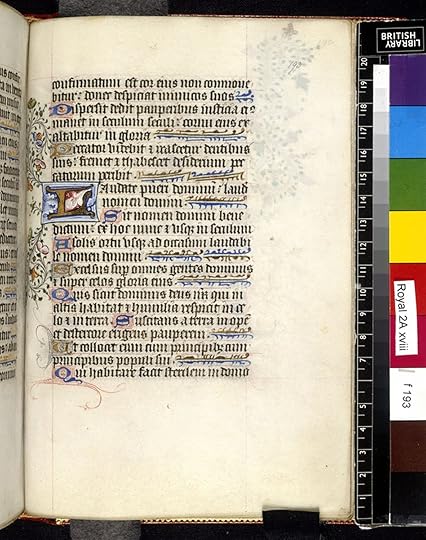 confirmatum est cor eius non commove
bitur: donec despiciat inimicos suos
Dispersit dedit pauperibus iusticia ei⁹
manet in seculum seculi: cornu eius ex
altabitur in gloria
Peccator videbit & irascetur dentibus
suis: fremet & thabescet desiderium pec
catorum peribit
Laudate pueri dominum: laud
nomen domini
Sit nomen domini bene
dictum: ex hoc nunc & usq3 in seculum
A solis ortu usq3 ad occasum laudabi
le nomen domini
Excelsus sup omnes gentes dominus
& super celos gloria eius
Quis sicut dominus deus nr qui in
altis habitat & humilia respicit in ce
lo & in terra Suscitans a terra inope
et de stercore erigens pauperem
Ut collocet eum cum principib3 cum
principibus populi sui
Qui habitare facit sterilem in domo
193
LIBRARY
BRITISH
Royal 2A xviii
f 193